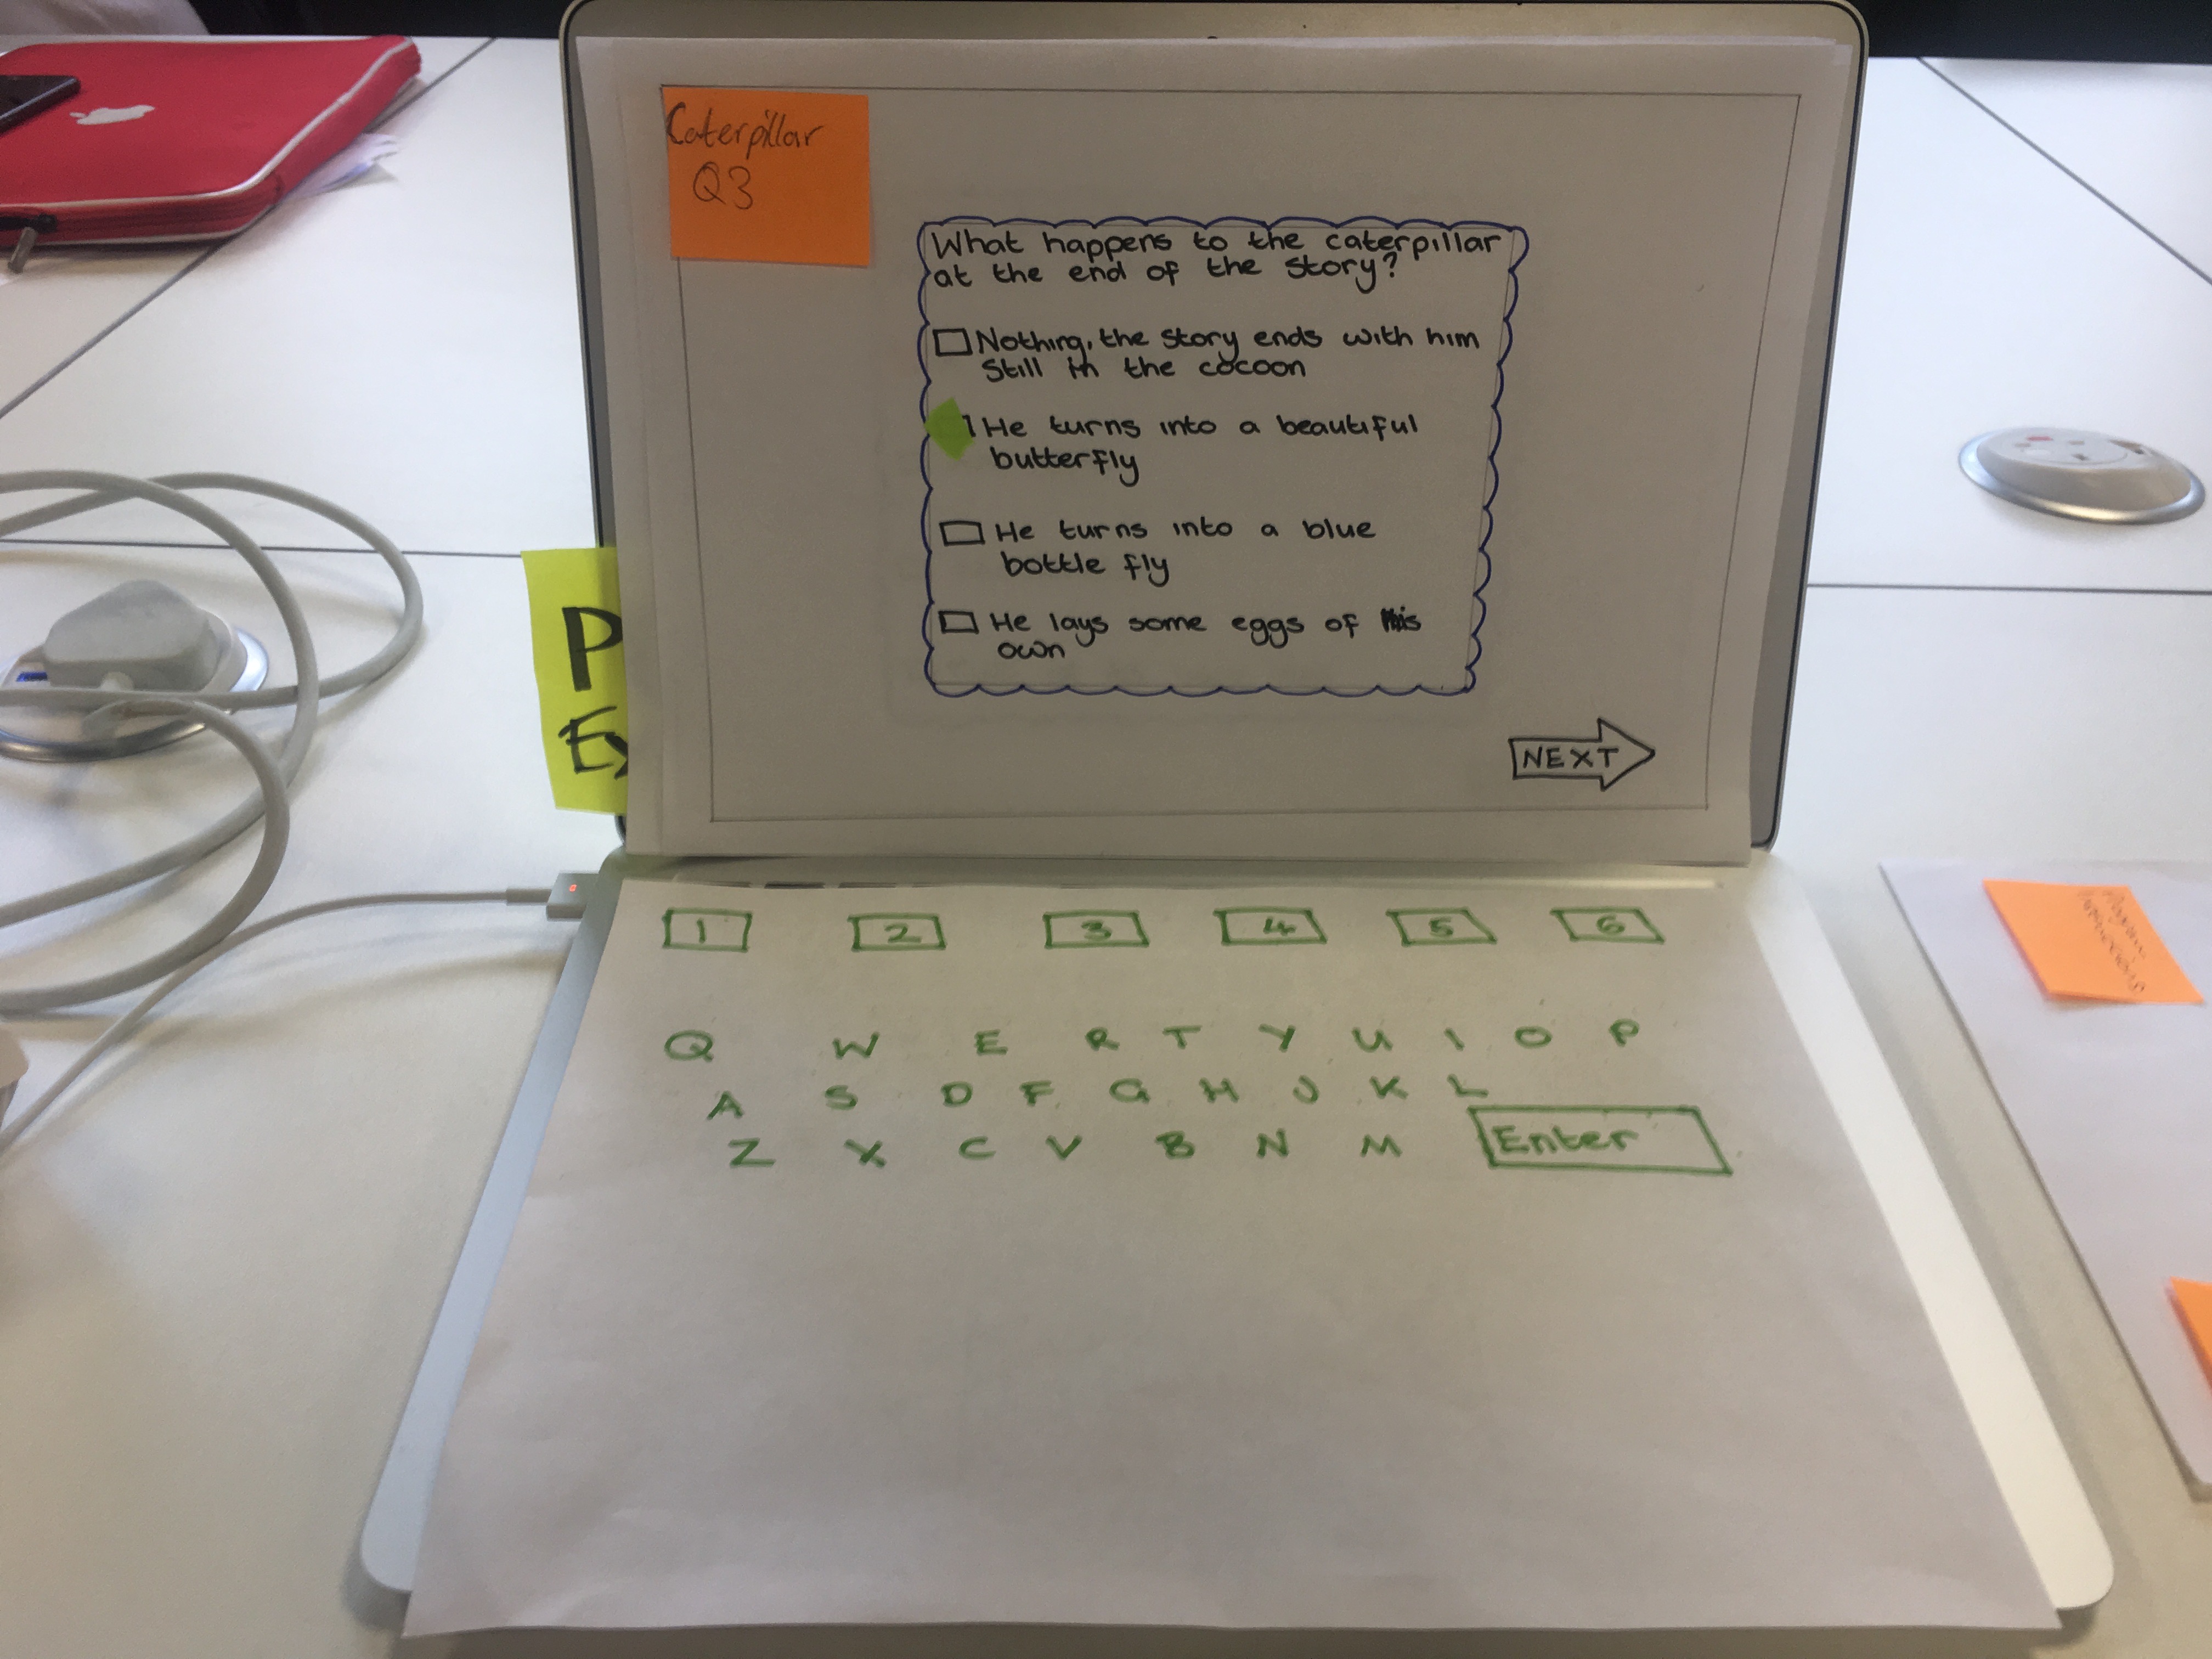 Caterpillar
Q3
What happens to the caterpillar
at the end of the story?
Nothing, the story ends with him
still in the cocoon
He turns into a beautiful
butterfly
He turns into a blue
bottle fly
He lays some eggs of his
own
NEXT
P
Ex
1 2 3 4 5 6
Q W E R T Y U I O P
A S D F G H J K L
Z X C V B N M Enter